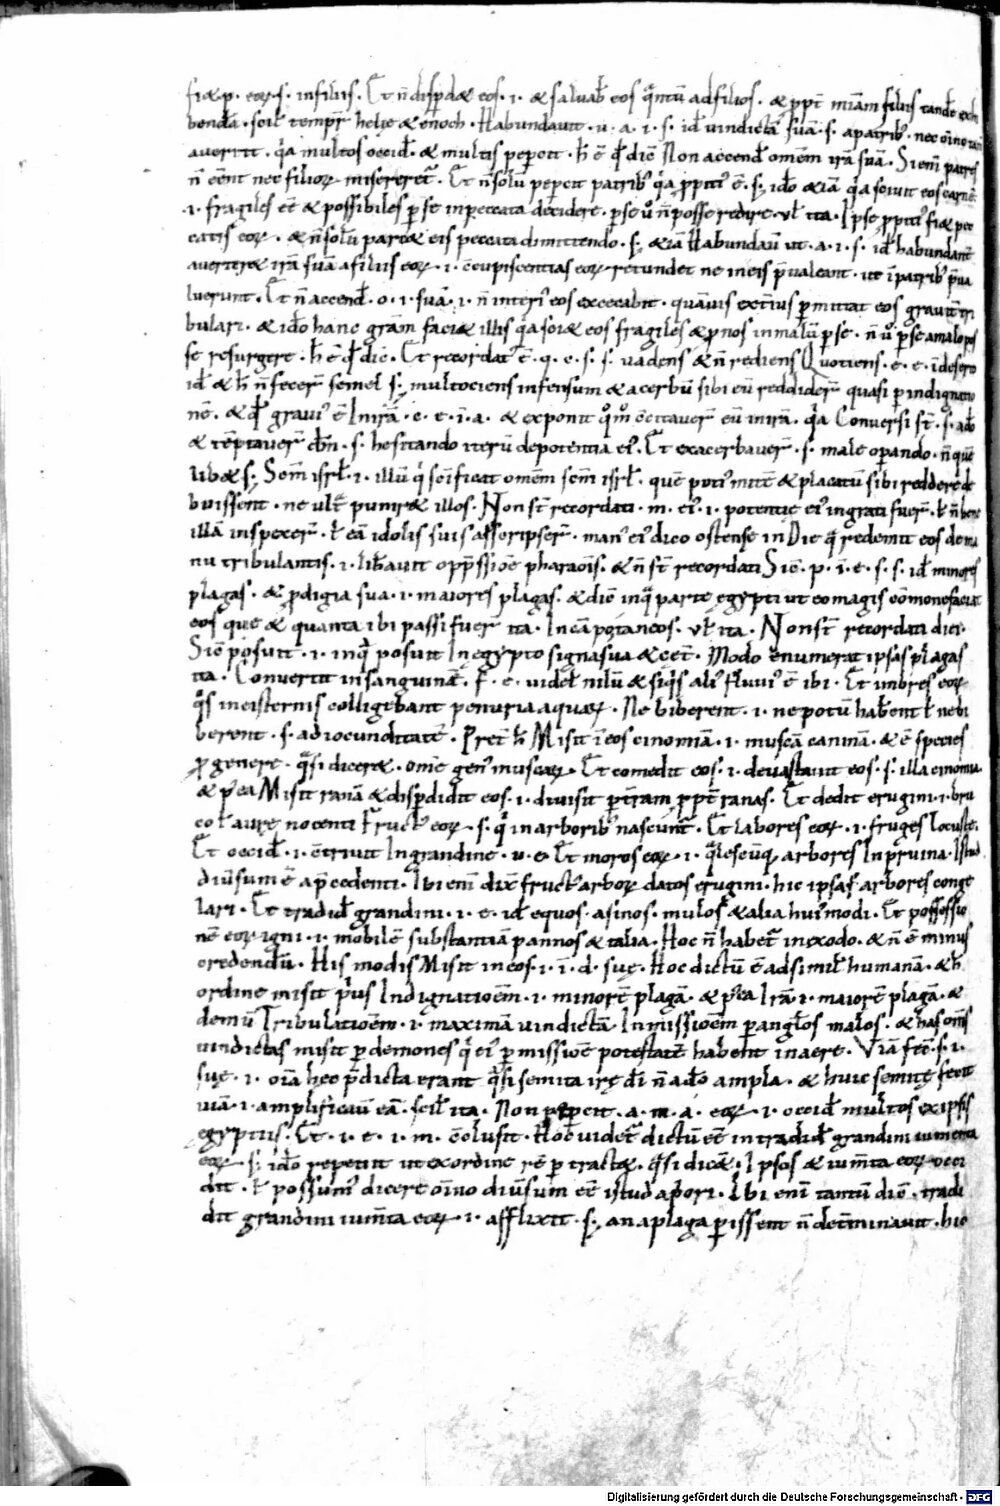 fi&p. eoꝝ. s. in filiis. Et n̄ disꝑd& eos. i. & saluab̄ eos q̄ntū ad filios. & ꝓpt̄ miām filiis tand̄
bendā. scił tempr̄ helie & enoch. Habundauit. u. a. i. s. id̄ uindictā suā. s. a patrib; nec oīno
auertit. q̄a multos occid̄. & multis peꝑcit. h̄ ē q̄d dic̄ Non accend̄ omēm irā suā. Si enī patres
n̄ eēnt nec filioꝝ misereret᷑. Et n̄ solū peꝑcit patrib; q̄a ꝓpiti᷒ ē. sꝫ ido & iā q̄a sciuit eos carnē
.i. fragiles eē & possibiles ꝑ se in peccata decidere. ꝑ se u̾ n̄ posse redire. uł ita. Ipse ꝓpiti᷒ fi& pec
catis eoꝝ. & n̄ solū parc& eis peccata dimittendo. sꝫ & iā Habundaū ut. a. i. s. id̄ habundant̄
auerter& irā suā a filiis eoꝝ. i. c̄cupiscentias eoꝝ. retundet ne in eis p̄ualeant. ut ī patrib; p̄ua
luerunt. Et n̄ accend̄. o. i. suā. i. n̄ interi᷒ eos excecabit. quāuis exteri᷒ ꝑmittat eos grauit̄ tri
bulari. & ido hanc grām faci& illis q̄a sci& eos fragiles & ꝓnos in malū ꝑ se. n̄ u̾ ꝑ se a malo pos
se resurgere. h̄ ē q̄d dic̄. Et recordat᷒ ē. q. e. s. s. uadens & n̄ rediens Quotiens. e. e. ī deserto
id̄ & h̄ n̄ fecer̄ semel sꝫ multociens infensum & acerbū sibi eū reddider̄ quasi ꝑ indignatio
nē. & q̄d graui᷒ ē In irā. e. e. i. a. & exponit q̊m̊ c̄citauer̄ eū in irā. q̄a Conuersi st̄. s. ab
& tēptauer̄ dm̄. s. hesitando iterū de potentia ei᷒. Et exacerbauer̄. s. male oꝑando. n̄ quē
lib& sꝫ Sc̄m isrł. i. illū q̇ sc̄ificat omēm sc̄m isrł. quē poti᷒ mitē & placatū sibi reddere de
buissent. ne ult᷑ punir& illos. Non st̄ recordati. m. ei᷒. i. potentię ei᷒ ingrati fuer̄. ł n̄ bene
illā inspexer̄. ł eā idolis suis asscripser̄. man᷒ ei᷒ dico ostensę in Die q̄ redemit eos de ma
nu tribulantis. i. lib̄auit opp̄ssiōe pharaōis. & n̄ st̄ recordati Sic̄. p. i. e. s. s. id̄ minores
plagas. & ꝓdigia sua. i. maiores plagas. & dic̄ in q̄ parte egypti ut eo magis cōmonefaciat
eos que & quanta ibi passi fuer̄ ita. In cāpo taneos. uł ita. Non st̄ recordati diei.
Sic̄ posuit. i. in q̄ posuit In egypto signa sua & cet̄. Modo enumerat ipsas plagas
ita. Conuertit in sanguinē. f. e. uidel̄ nilū & siq̇s ali᷒ fluui᷒ ē ibi. Et imbres eoꝝ
q̊s in cisternis colligebant penuria aquaꝝ. Ne biberent. i. ne potū hab̄ent ł ne bi
berent. s. ad iocunditatē. Pret̄ h̄ Misit ī eos cinomiā. i. muscā caninā. & ē species
ꝓ genere. q̄si dicer&. omē gen᷒ muscaꝝ. Et comedit eos. i. deuastauit eos. s. illa cinomia.
& p̄ea Misit ranā & disꝑdidit eos. i. diuisit ꝑ t̄ram ꝓpt̄ ranas. Et dedit erugini. i. bru
co ł aurę nocenti Fruct᷒ eoꝝ. s. q̇ in arborib; nascunt᷑. Et labores eoꝝ. i. fruges Locuste.
Et occid̄. i. c̄triuit In grandine. u. e. Et moros eoꝝ. i. q̄lescūq; arbores In pruina. Istud
diūsum ē a p̄cedenti. Ibi enī dix̄ fruct᷒ arboꝝ datos erugini. hic ipsas arbores conge
lari. Et tradid̄ grandini. i. e. id̄ equos. asinos. mulos & alia hui᷒modi. Et possessio
nē eoꝝ igni. i. mobilē substantiā pannos & talia. Hoc n̄ habet᷑ in exodo. & n̄ ē minus
credendū. His modis Misit in eos. i. ī. d. suę. Hoc dictū ē ad simił humanā. & h̄
ordine misit p̄us Indignatioēm. i. minorē plagā. & p̄ea Irā. i. maiorē plagā. &
demū Tribulatioēm. i. maximā uindictā. In missioēm ꝑ angłos malos. & has om̄s
uindictas misit ꝑ demones q̇ ei᷒ ꝑmissiōe potestatē habent in aere. Viā fec̄. s. i.
suę. i. oīa hec p̄dicta erant q̄si semita irę di n̄ ado ampla. & huic semitę fecit
uiā. i. amplificaū eā. scił ita. Non peꝑcit. a. m. a. eoꝝ. i. occid̄ multos ex ipsis
egyptiis. Et. i. e. i. m. c̄clusit. Hoc uidet᷑ dictū eē in tradid̄ grandini iumenta
eoꝝ. sꝫ ido repetiit ut ex ordine rē ꝑtract&. q̄si dic&. Ipsos & ium̄ta eoꝝ occi
dit. ł possum᷒ dicere oīno diūsum eē istud a p̄ori. Ibi enī tantū dic̄. tradi
dit grandini ium̄ta eoꝝ. i. afflixit. sꝫ an a plaga ꝑissent n̄ det̄minauit. hic
Digitalisierung gefördert durch die Deutsche Forschungsgemeinschaft - DFG